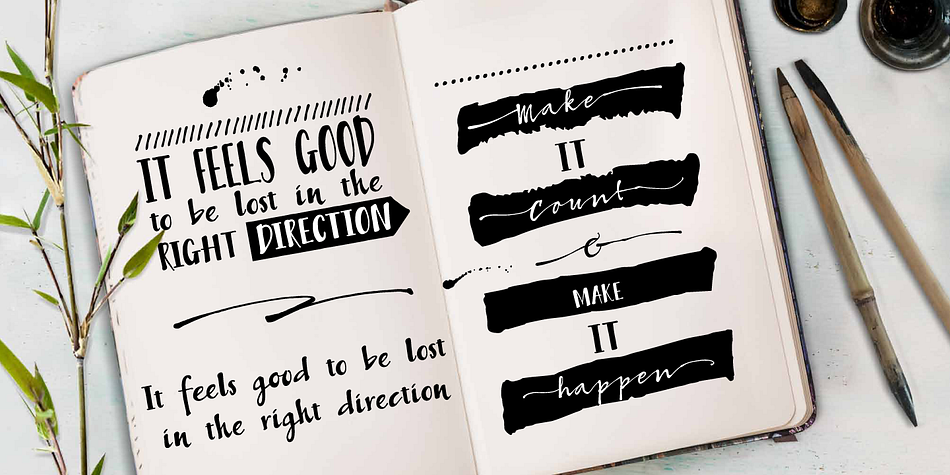 IT FEELS GOOD
to be lost in the
RIGHT DIRECTION
It feels good to be lost
in the right direction
make
IT
count
&
MAKE
IT
happen